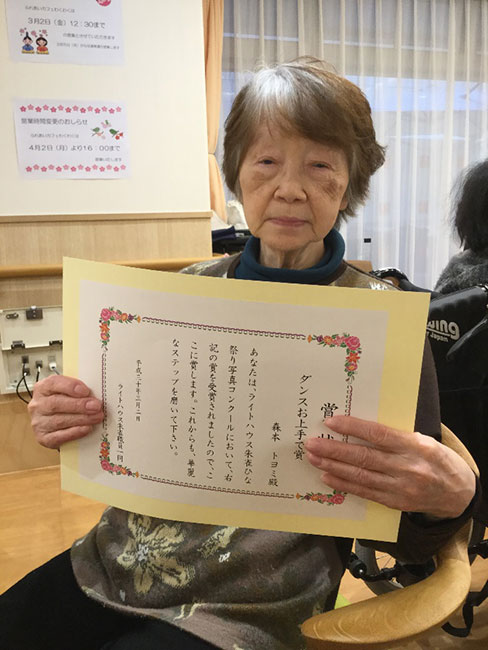 ふれあいカフェわくわくは
3月2日(金)12:30まで
営業時間変更のおしらせ
ふれあいカフェわくわくは
4月2日(月)より16:00まで
賞状
ダンスお上手で賞
森本 トヨミ殿
あなたは、ライトハウス朱雀ひな
祭り写真コンクールにおいて、右
記の賞を受賞されましたので、こ
こに賞します。これからも、華麗
なステップを磨いて下さい。
ライトハウス朱雀職員一同
wing
Japan